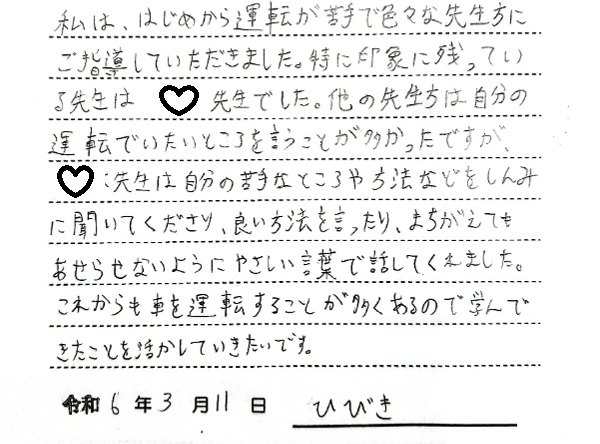 私は、はじめから運転が苦手で色々な先生方に
ご指導していただきました。特に印象に残ってい
る先生は 先生でした。他の先生方は自分の
運転でいたいところを言うことが多かったですが、
先生は自分の苦手なところや方法などをしんみ
に聞いてくださり、良い方法を言ったり、まちがえても
あせらせないようにやさしい言葉で話してくれました。
これからも車を運転することが多くあるので学んで
きたことを活かしていきたいです。
令和6年3月11日 ひびき